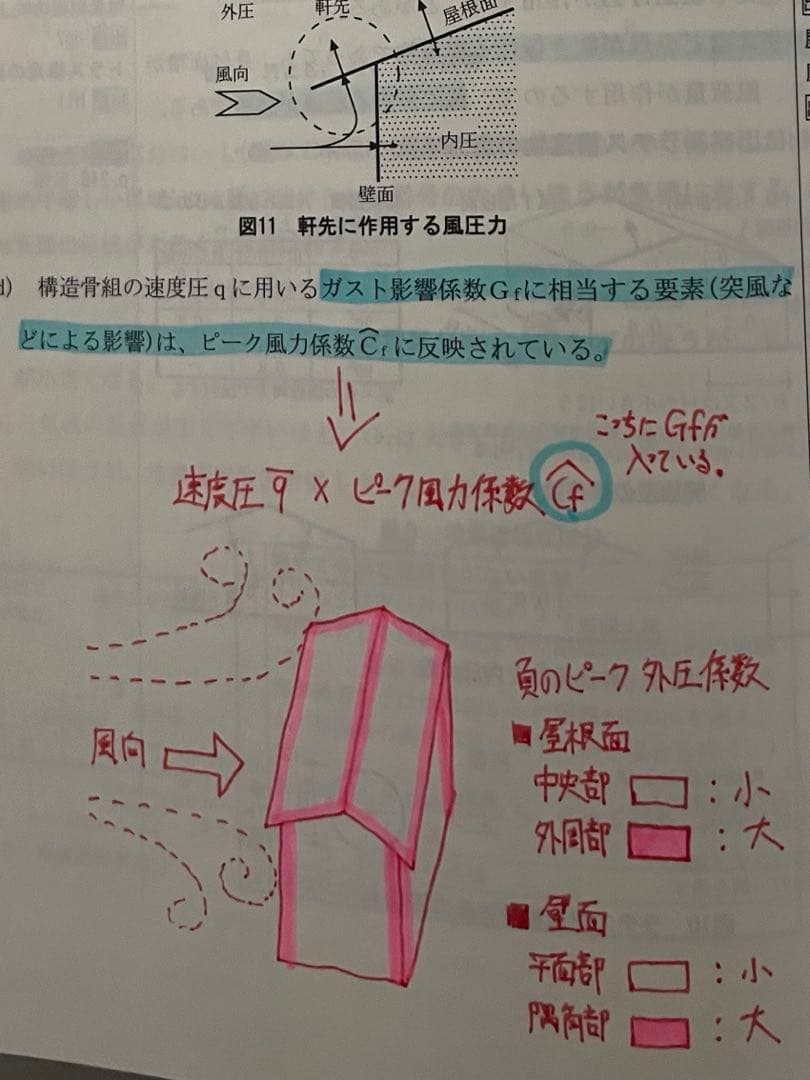 外圧
軒先
屋根面
風向
内圧
壁面
図11 軒先に作用する風圧力
d) 構造骨組の速度圧qに用いるガスト影響係数Gfに相当する要素(突風な
どによる影響)は、ピーク風力係数Ĉfに反映されている。
こっちにGfが
入っている。
速度圧q̄ × ピーク風力係数Ĉf
風向
負のピーク外圧係数
■屋根面
中央部 :小
外周部 :大
■壁面
平面部 :小
隅角部 :大